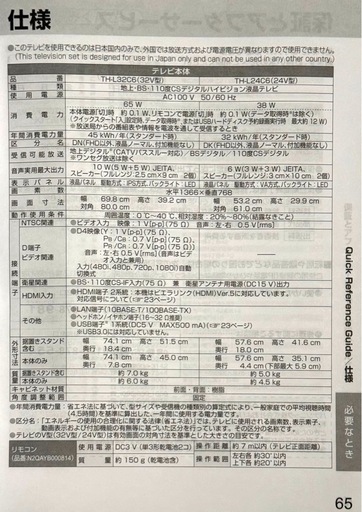 仕様
●このテレビを使用できるのは日本国内のみで、外国では放送方式および電源電圧が異なりますので使用できません。
(This television set is designed for use in Japan only and can not be used in any other country.)
テレビ本体
品番 TH-L32C6(32V型) TH-L24C6(24V型)
種類 地上・BS・110度CSデジタルハイビジョン液晶テレビ
使用電源 AC100 V 50/60 Hz
消費電力 65 W 38 W
本体電源「切」時 約 0.1 W、リモコンで電源「切」時 約 0.1 W(データ取得時*を除く)
(クイックスタート「入」設定時、データ取得時*またはUSBハードディスク予約録画実行時 最大約 12 W)
※放送局からの番組表や情報を電波を通して受信するとき
年間消費電力量 45 kWh/年(スタンダード時) 32 kWh/年(スタンダード時)
区分名 DN(FHD以外、液晶ノーマル、付加機能なし) DK(FHD以外、液晶ノーマル、付加機能なし)
受信可能放送 地上デジタル*(CATVパススルー対応)/BSデジタル/110度CSデジタル
※ワンセグ放送は除く
音声実用最大出力 10 W(5 W+5 W) JEITA、 6 W(3 W+3 W) JEITA、
スピーカー(フルレンジ:2.5 cm×9 cm 2個) スピーカー(フルレンジ:3 cm×10 cm 2個)
表示パネル 液晶パネル 駆動方式:IPS方式、バックライト:LED 液晶パネル 駆動方式:VA方式、バックライト:LED
画素数 水平1366×垂直768
画面寸法 幅 69.8 cm 高さ 39.2 cm 幅 53.2 cm 高さ 29.9 cm
対角 80.0 cm 対角 61.0 cm
動作使用条件 周囲温度:0℃~40℃、相対湿度:20%~80%(結露なきこと)
接続端子
NTSC関連 ●ビデオ入力 映像:1 V[p-p](75 Ω)、音声:左・右 0.5 V[rms]
D端子
ビデオ関連 ●D4映像(Y:1 V[p-p](75 Ω)、
PB/CB:0.7 V[p-p](75 Ω)、
PR/CR:0.7 V[p-p](75 Ω)、
音声:左・右 0.5 V[rms](音声はビデオ入力と兼用)
入力(480i、480p、720p、1080i)自動切換式
衛星関連 ●BS・110度CS-IF入力(75 Ω) 兼 衛星アンテナ用電源(DC15 V)出力
HDMI入力 ●HDMI端子 2系統:本機はビエラリンク(HDMI)Ver.5に対応しています。
対応信号について(☞23ページ)
その他 ●LAN端子(10BASE-T/100BASE-TX)
●ヘッドホン/イヤホン端子(16~32 Ω推奨)
●USB端子*1系統(DC5 V MAX500 mA)(☞23ページ)
※USB3.0には対応していません。
外形寸法
据置きスタンド含む 幅 74.1 cm 高さ 51.5 cm 幅 57.6 cm 高さ 41.6 cm
奥行 18.4 cm 奥行 18.0 cm
本体のみ 幅 74.1 cm 高さ 45.0 cm 幅 57.6 cm 高さ 35.1 cm
奥行 7.8 cm 奥行 4.4 cm(下部最大 5.9 cm)
質量
据置きスタンド含む 約 7.0 kg 約 5.0 kg
本体のみ 約 6.0 kg 約 4.5 kg
キャビネット材質 前面・背面:樹脂
角度調整範囲 固定
●年間消費電力量:省エネ法に基づいて、型サイズや受信機の種類別の算定式により、一般家庭での平均視聴時間(4.5時間)を基準に算出した、一年間に使用する電力量です。
●区分名:「エネルギーの使用の合理化に関する法律(省エネ法)」では、テレビに使用される画素数、表示素子、動画表示および付加機能の有無等に基づいた区分を行っています。その区分名称です。
●テレビのV型(32V型/24V型)は有効画面の対角寸法を基準とした大きさの目安です。
リモコン
(品番:N2QAYB000814) 使用電源 DC3 V(単3形乾電池2コ) 操作距離 約 7 m以内(テレビ正面距離)
質量 約 150 g(乾電池含む) 操作範囲 左右各 約30°以内
上下各 約20°以内
Quick Reference Guide/仕様
必要なとき
65